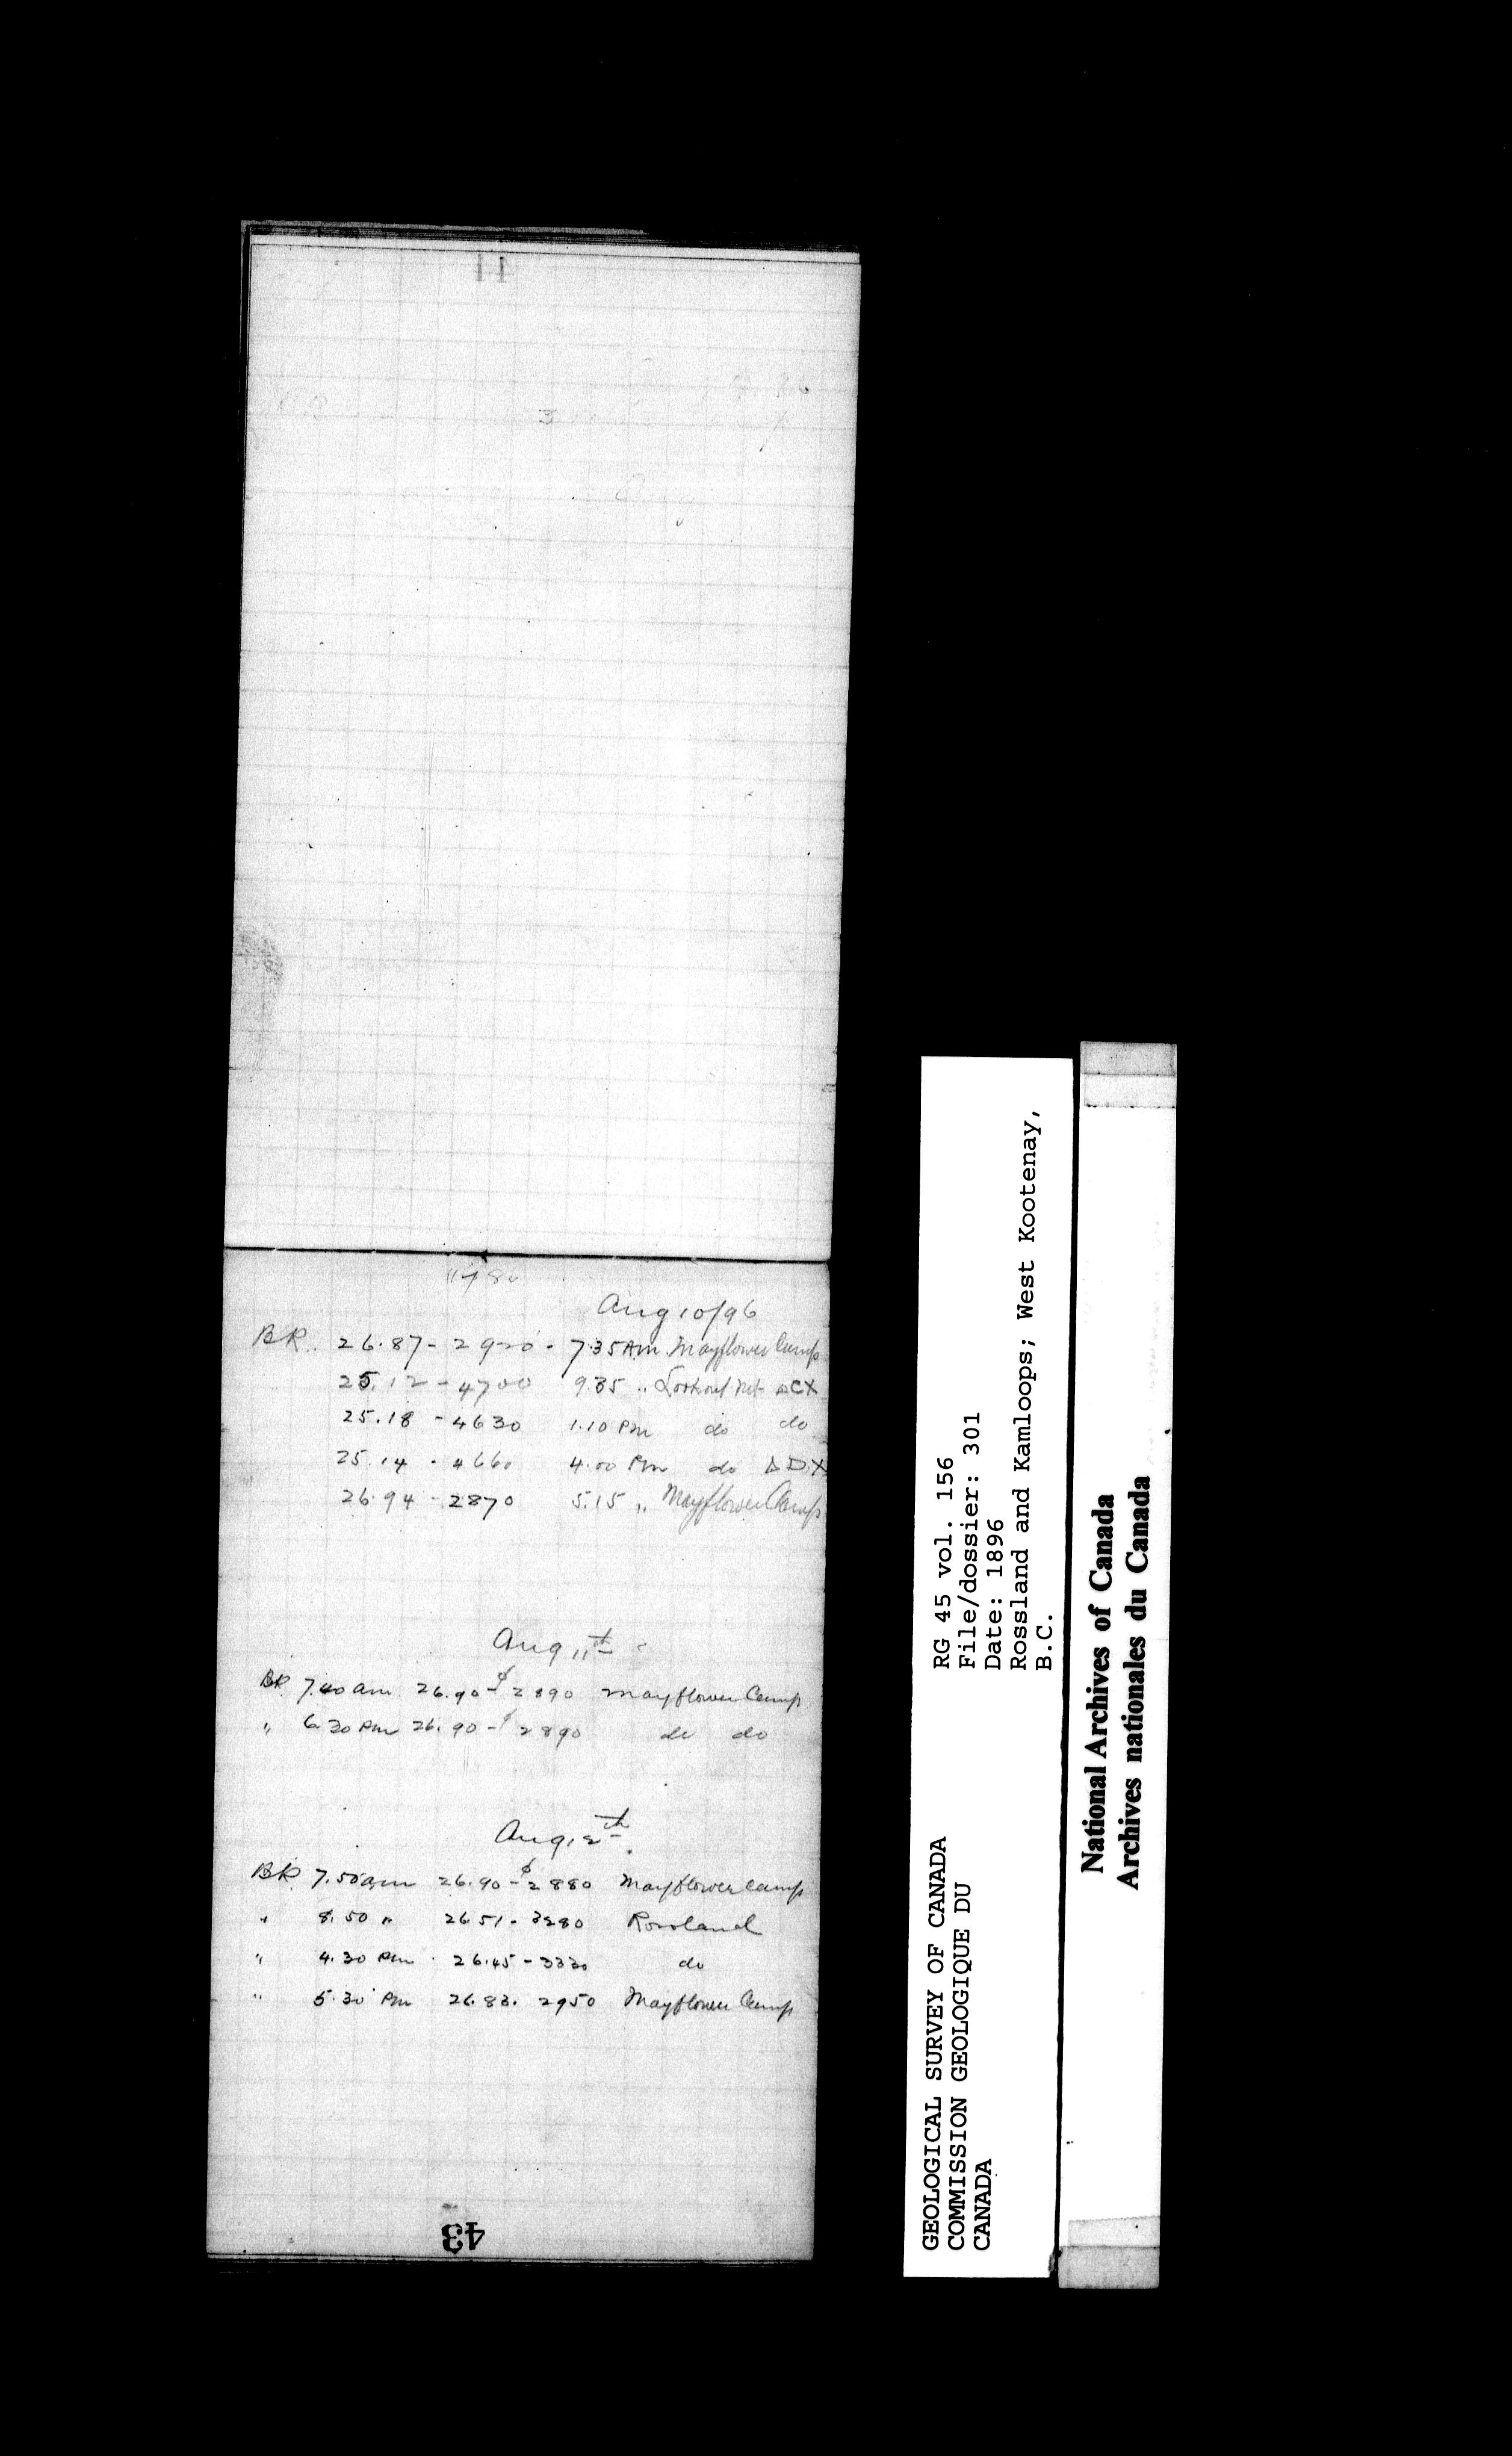 1780
Aug 10/96
BR. 26.87 - 2920 - 7.35 Am. Mayflower Camp
25.12 - 4700 9.35 " Lookout Mt ΔCX
25.18 - 4630 1.10 Pm do do
25.14 - 4660 4.00 Pm do ΔDX
26.94 - 2870 5.15 " Mayflower Camp
Aug 11th
BR. 7.40 am 26.90 - 2890 Mayflower Camp
" 6.30 Pm 26.90 - 2890 do do
Aug 12th
BR. 7.50 am 26.90 - 2880 Mayflower Camp
" 8.50 " 26.51 - 3280 Rossland
" 4.30 Pm 26.45 - 3330 do
" 5.30 Pm 26.83. 2950 Mayflower Camp
43
GEOLOGICAL SURVEY OF CANADA
COMMISSION GEOLOGIQUE DU
CANADA
RG 45 vol. 156
File/dossier: 301
Date: 1896
Rossland and Kamloops; West Kootenay,
B.C.
National Archives of Canada
Archives nationales du Canada